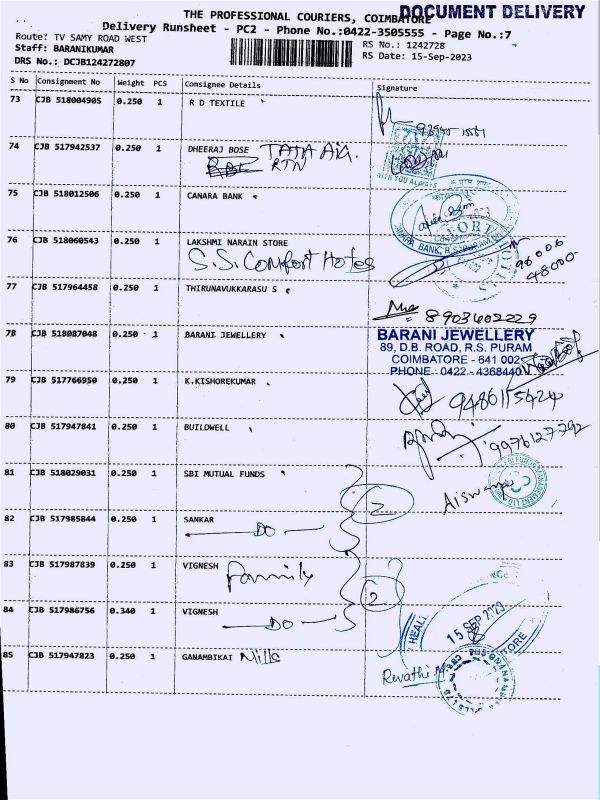 DOCUMENT DELIVERY
THE PROFESSIONAL COURIERS, COIMBATORE
Delivery Runsheet - PC2 - Phone No.:0422-3505555 - Page No.:7
Route: TV SAMY ROAD WEST
RS No.: 1242728
Staff: BARANIKUMAR
RS Date: 15-Sep-2023
DRS No.: DCJB124272807
S No Consignment No Weight PCS Consignee Details Signature
73 CJB 518004905 0.250 1 R D TEXTILE
74 CJB 517942537 0.250 1 DHEERAJ BOSE TATA AIA.
RTN
WITH YOU ALWAYS
75 CJB 518012506 0.250 1 CANARA BANK
76 CJB 518060543 0.250 1 LAKSHMI NARAIN STORE
S.S. Comfort Hotes
96006
48000
77 CJB 517964458 0.250 1 THIRUNAVUKKARASU S
8903602229
78 CJB 518087048 0.250 1 BARANI JEWELLERY
BARANI JEWELLERY
89, D.B. ROAD, R.S. PURAM
COIMBATORE - 641 002
PHONE : 0422 - 4368440
79 CJB 517766950 0.250 1 K.KISHOREKUMAR
9486115424
80 CJB 517947841 0.250 1 BUILDWELL
9976127792
81 CJB 518029031 0.250 1 SBI MUTUAL FUNDS
2
Aiswarya
82 CJB 517985844 0.250 1 SANKAR
DO
83 CJB 517987839 0.250 1 VIGNESH
Family
2
84 CJB 517986756 0.340 1 VIGNESH
DO
15 SEP 2023
85 CJB 517947823 0.250 1 GANAMBIKAI Mills
Revathi